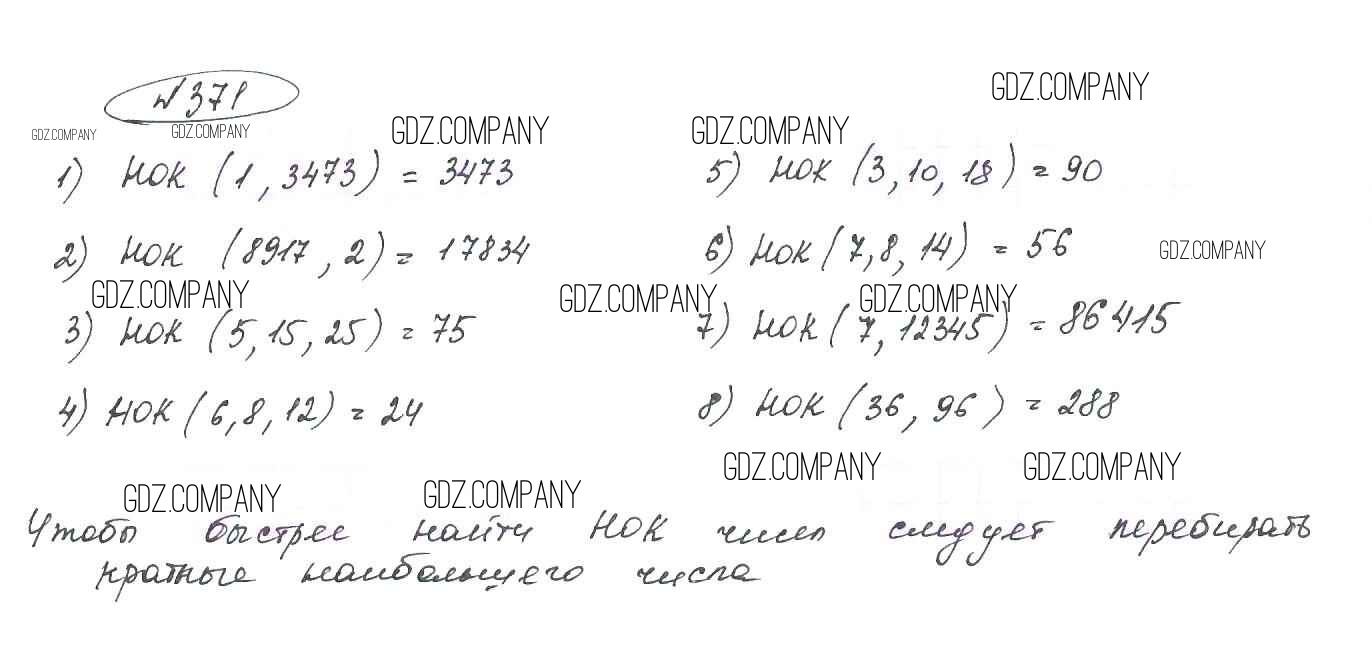 №371
GDZ.COMPANY
GDZ.COMPANY GDZ.COMPANY GDZ.COMPANY GDZ.COMPANY
1) НОК (1, 3473) = 3473
5) НОК (3, 10, 18) = 90
2) НОК (8917, 2) = 17834
6) НОК (7, 8, 14) = 56
GDZ.COMPANY
GDZ.COMPANY GDZ.COMPANY GDZ.COMPANY
3) НОК (5, 15, 25) = 75
7) НОК (7, 12345) = 86415
4) НОК (6, 8, 12) = 24
8) НОК (36, 96) = 288
GDZ.COMPANY GDZ.COMPANY
GDZ.COMPANY GDZ.COMPANY
Чтобы быстрее найти НОК чисел следует перебирать
кратные наибольшего числа